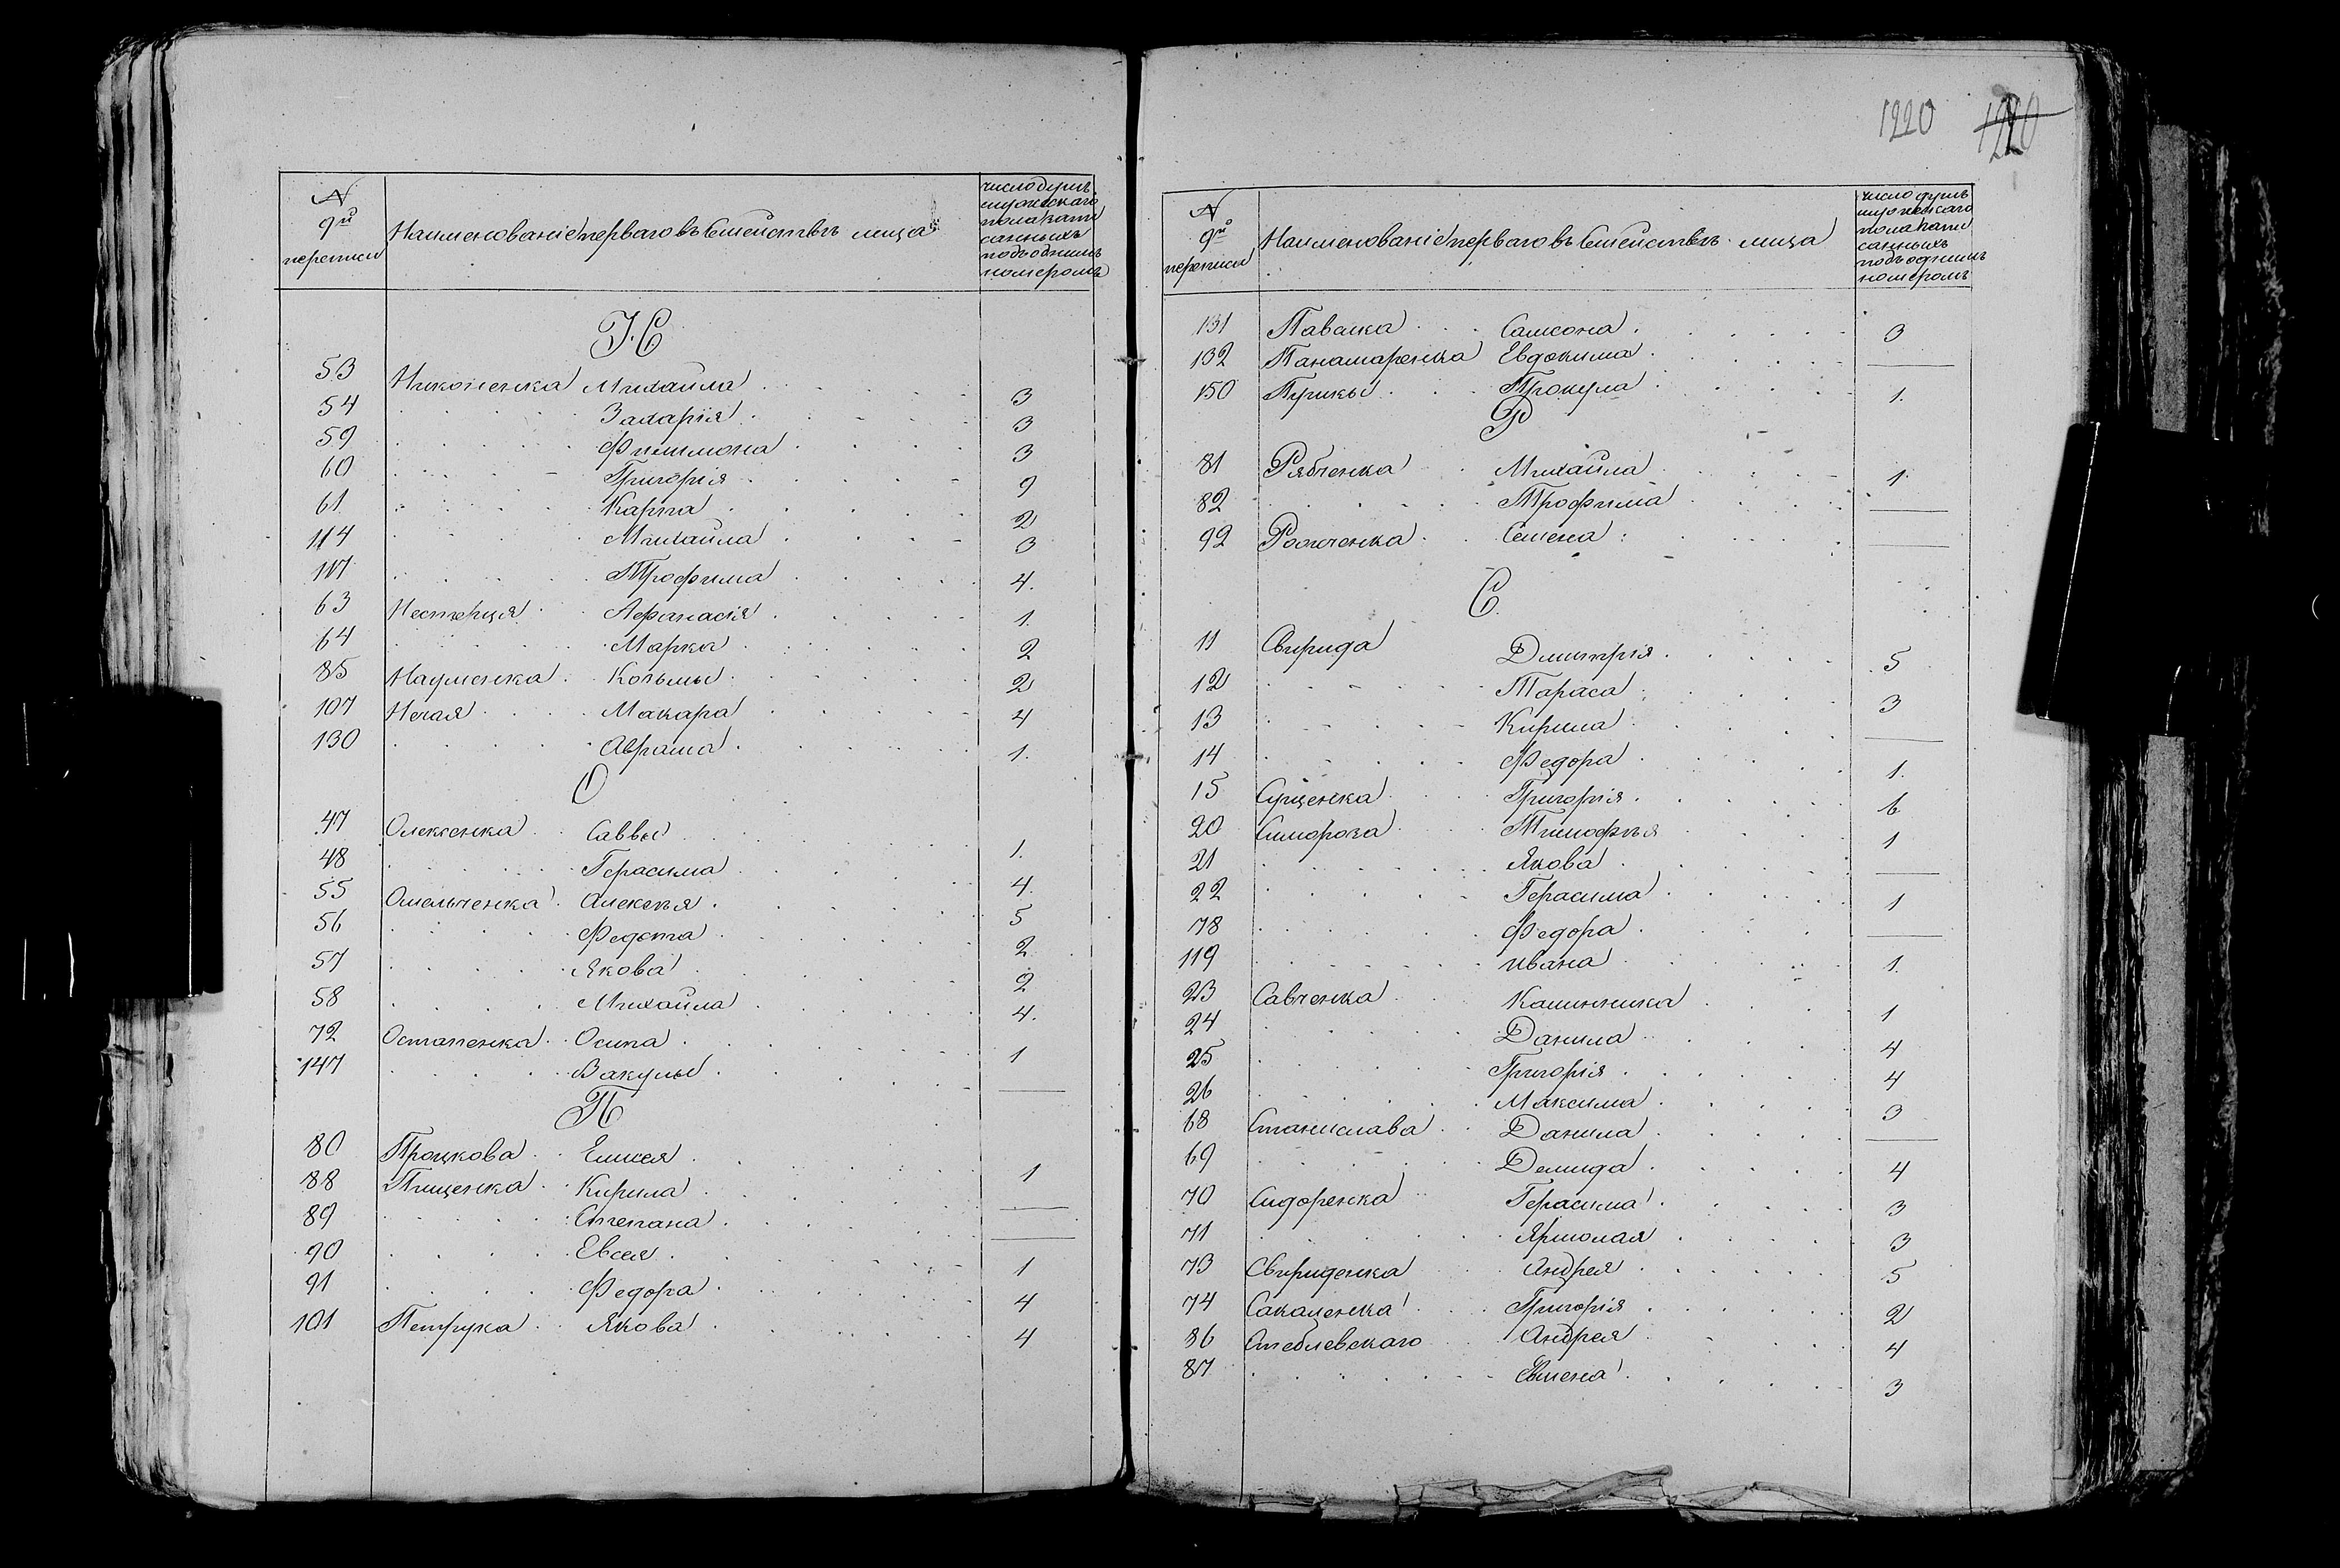 № 9й переписи | Наименованіе перваго въ Семействѣ лица | число душъ мужескаго пола напи санныхъ подъ однимъ номеромъ
Н
53 Никоненка Михайла 3
54 Захарія 3
59 Филимона 3
60 Григорія 9
61 Карпа 2
114 Михайла 3
117 Трофима 4.
63 Нестерця Афанасія 1.
64 Марка 2
85 Науменка Козьмы 2
107 Нечая Макара 4
130 Аврама 1.
О
47 Олексенка Саввы 1.
48 Герасима 4.
55 Омельченка Алексѣя 5
56 Федота 2
57 Якова 2
58 Михайла 4.
72 Остапенка Осипа 1
147 Вакулы —
П
80 Процкова Елисея 1
88 Пищенка Кирила —
89 Степана —
90 Евсея 1
91 Федора 4
101 Петрука Якова 4
1220 1220
№ 9й переписи | Наименованіе перваго въ Семействѣ лица | число душъ мужескаго пола напи санныхъ подъ однимъ номеромъ
131 Самсона 3
132 Панамаренка Евдокима —
150 Прокула 1.
Р
81 Рябченка Михайла 1.
82 Трофима —
92 Семена —
С
11 Свирида Дмитрія 5
12 Тараса 3
13 Кирила —
14 Федора 1.
15 Сущенка Григорія 6
20 Симороза Тимофѣя 1
21 Якова —
22 Герасима 1
78 Федора —
119 Ивана 1.
23 Савченка Калинника 1
24 Данила 4
25 Григорія 4
26 Максима 3
68 Станислава Данила —
69 Демида 4
70 Сидоренка Герасима 3
71 Ярмолая 3
73 Свириденка Андрея 5
74 Сакаленка Григорія 2
86 Стеблевскаго Андрея 4
87 Семена 3